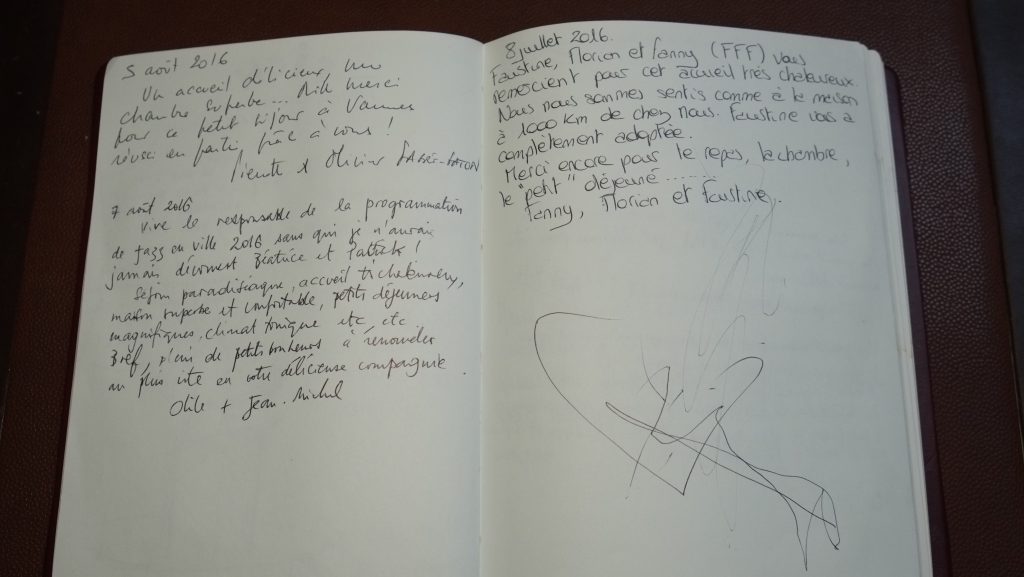 5 août 2016
Un accueil délicieux, une
chambre superbe... Mille merci
pour ce petit séjour à Vannes
réussi en partie, grâce à vous !
& Olivier
7 août 2016
Vive le responsable de la programmation
de Jazz en ville 2016 sans qui je n'aurais
jamais découvert Béatrice et Patrick !
Séjour paradisiaque, accueil
maison superbe et confortable, petits déjeuners
magnifiques, climat tonique etc, etc
Bref, plein de petits bonheurs à renouveler
au plus vite en votre délicieuse compagnie.
Odile + Jean-Michel
8 juillet 2016.
Faustine, Florian et Fanny (FFF) vous
remercient pour cet accueil très chaleureux.
Nous nous sommes sentis comme à la maison
à 1000 km de chez nous. Faustine vous a
complètement adoptée.
Merci encore pour le repas, la chambre,
le "petit" déjeuné......
Fanny, Florian et Faustine.